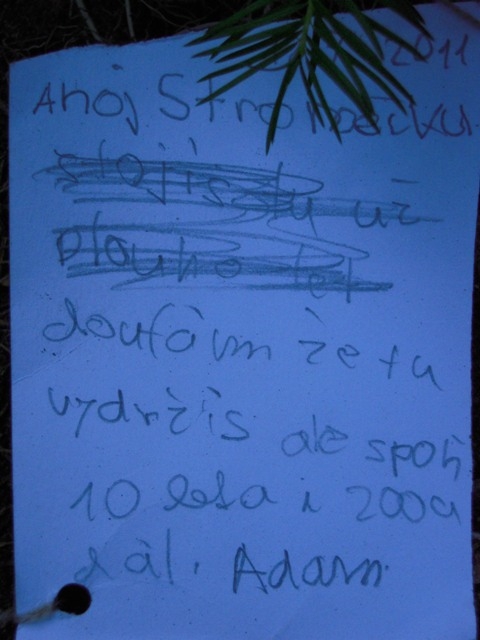 2011
Ahoj Stromečku
stojis tu už
dlouho let
doufám že tu
vydržis ale spoň
10 leta i 200a
dál. Adam